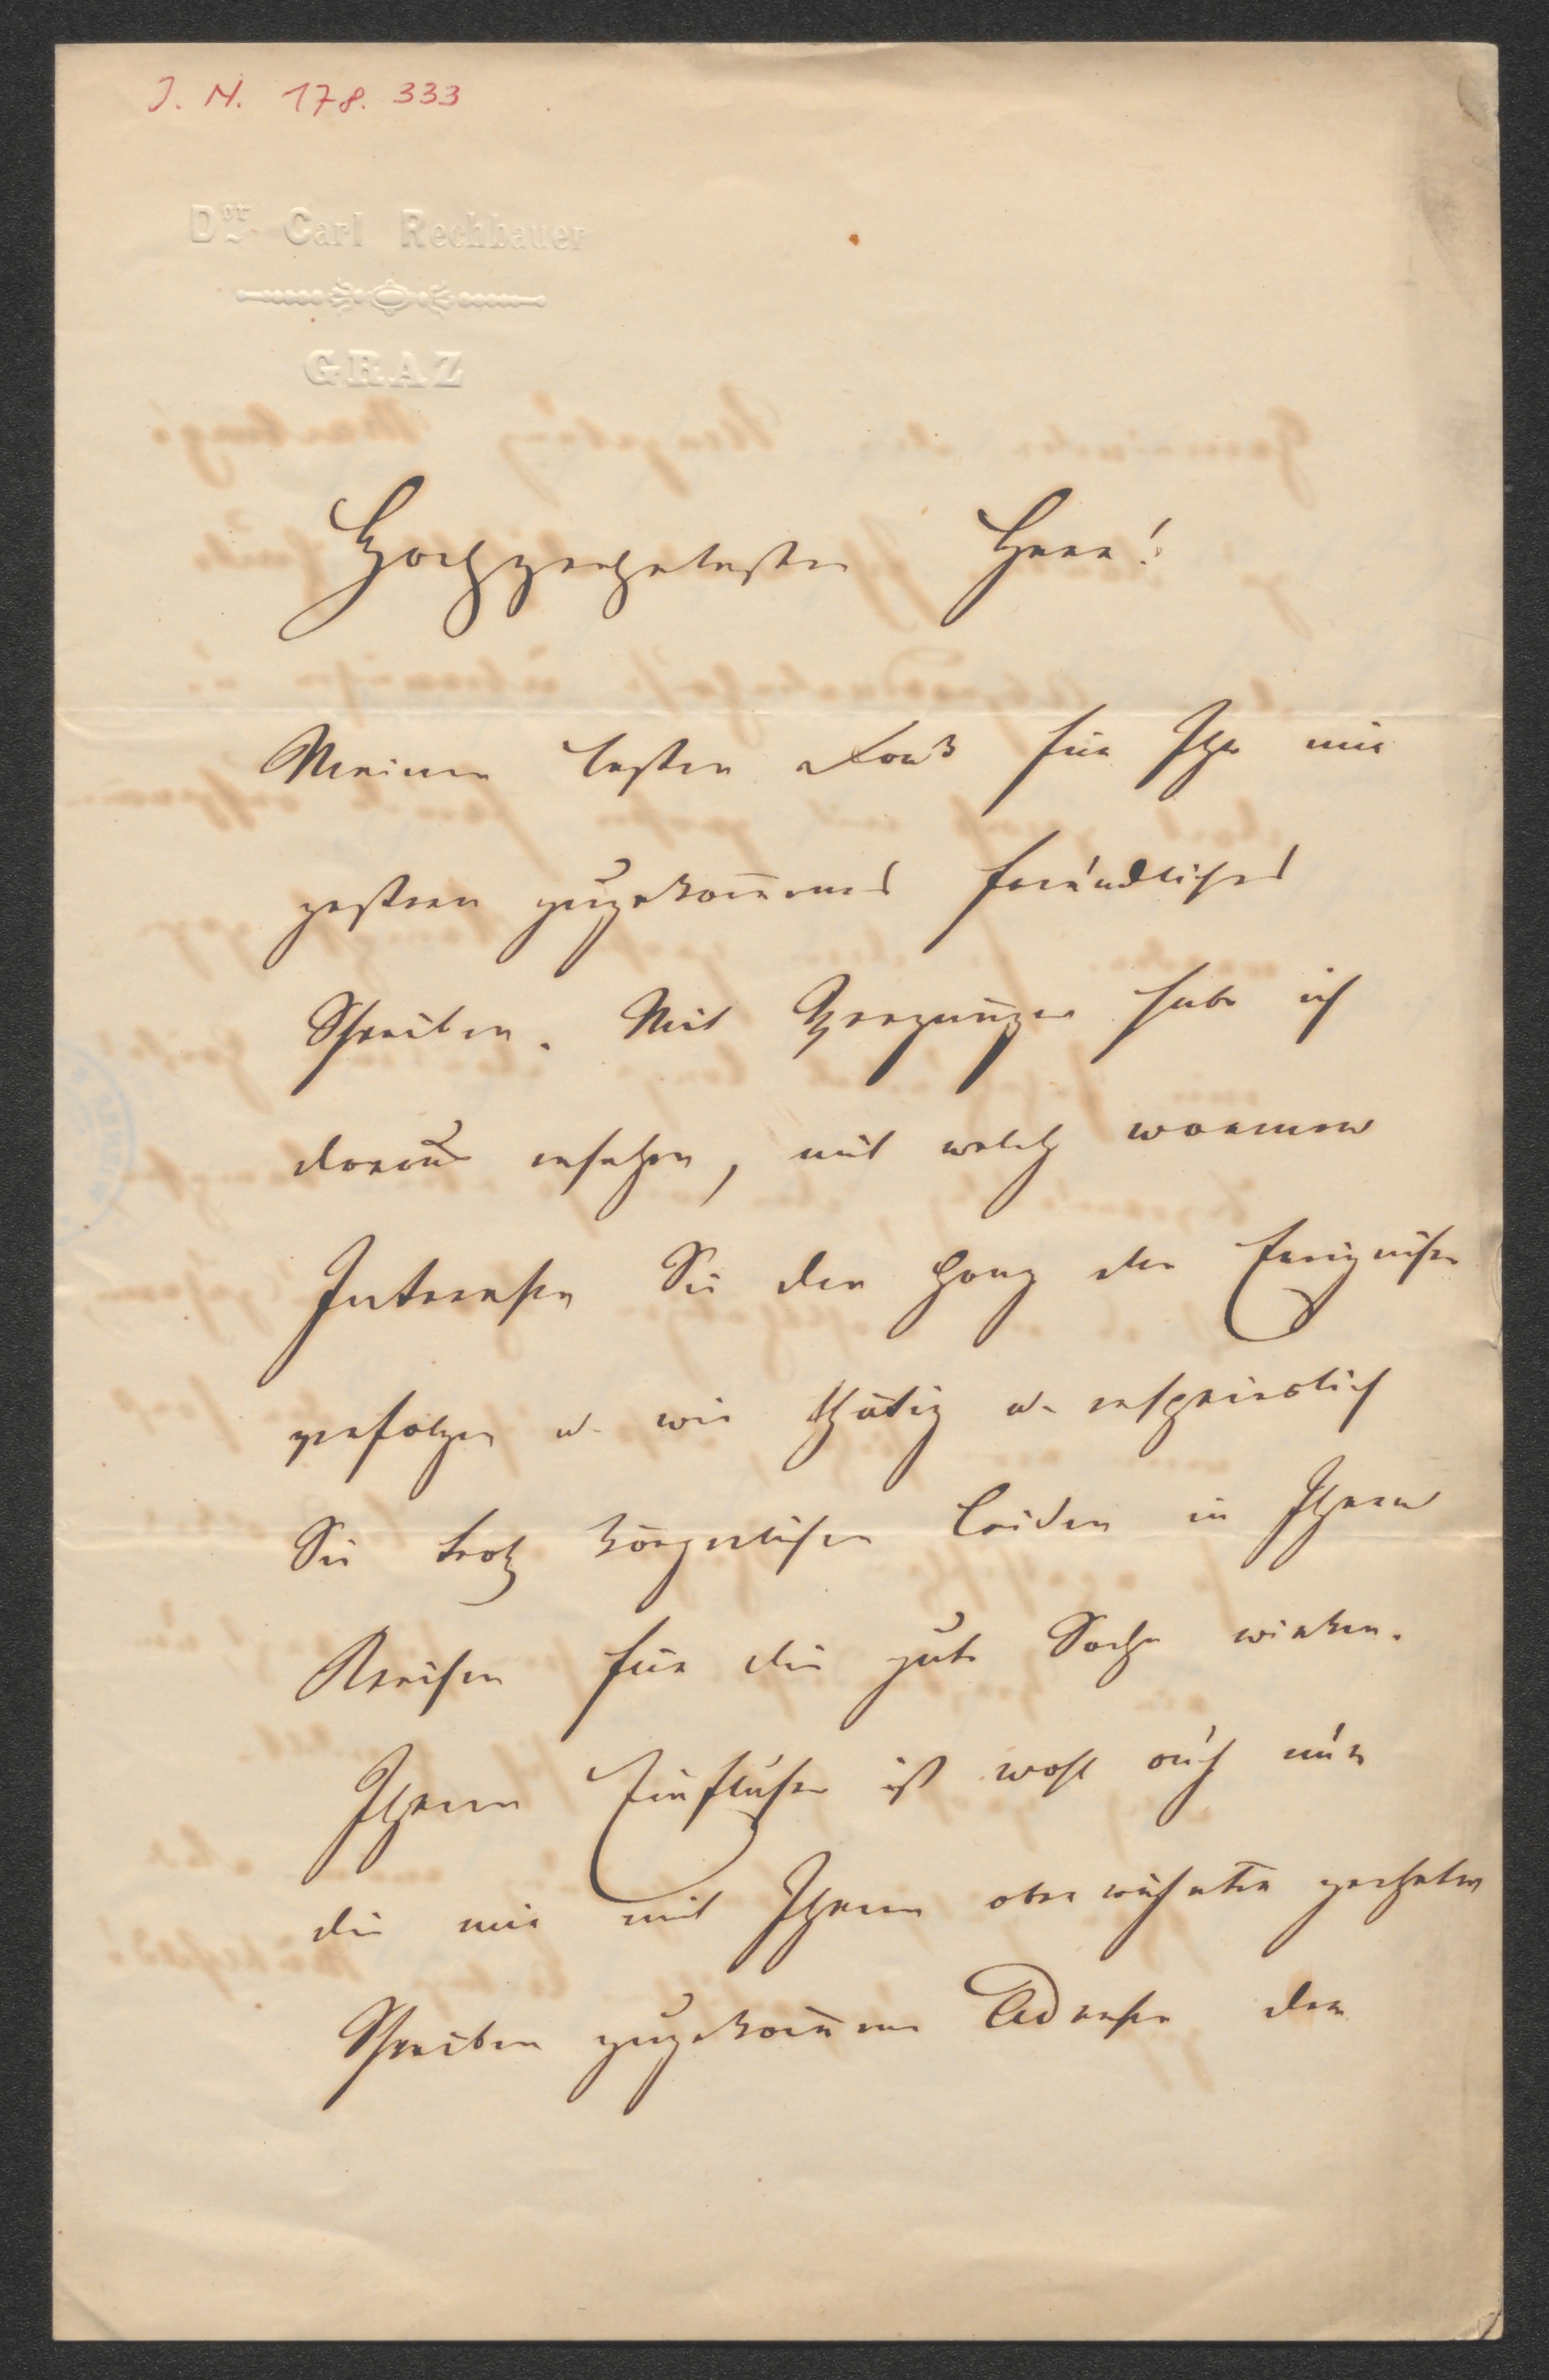 J. N. 178.333
Dor Carl Rechbauer
GRAZ
Hochgeehrtester Herr!
Meinen besten Dank für Ihr mir
gestern zugekom̄enes freundliches
Schreiben. Mit Vergnügen habe ich
daraus ersehen, mit welch warmem
Interesse Sie den Gang der Ereignisse
verfolgen u. wie thätig u. ersprieslich
Sie trotz körperlichen Leiden in Ihren
Kreisen für die gute Sache wirken.
Ihrem Einflusse ist wohl auch
die mir mit Ihrem oberwähnten geehrten
Schreiben zugekom̄ene Adresse der